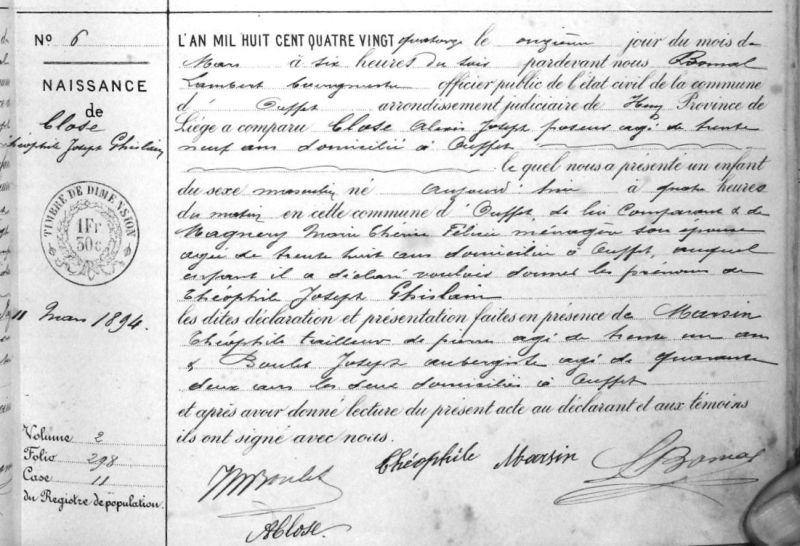 N° 6
NAISSANCE
de
Close
Théophile Joseph Ghislain
TIMBRE DE DIMENSION
1 Fr
30 c
11 mars 1894.
Volume 2
Folio 298
Case 11
du Registre de population.
L'AN MIL HUIT CENT QUATRE VINGT quatorze le onzième jour du mois de
Mars à six heures du soir pardevant nous Bomal
Lambert bourgmestre officier public de l'état civil de la commune
d' Ouffet arrondissement judiciaire de Huy Province de
Liége a comparu Close Alexis Joseph poseur agé de trente
neuf ans domicilié à Ouffet
le quel nous a présenté un enfant
du sexe masculin né aujourd'hui à quatre heures
du matin en cette commune d'Ouffet, de lui Comparant & de
Magnery Marie Thérèse Félicie ménagère son épouse
agée de trente huit ans domiciliée à Ouffet, auquel
enfant il a déclaré vouloir donner les prénoms de
Théophile Joseph Ghislain
les dites déclaration et présentation faites en présence de Marsin
Théophile tailleur de pierre agé de trente un ans
& Boulet Joseph aubergiste agé de quarante
deux ans les deux domiciliés à Ouffet
et après avoir donné lecture du présent acte au déclarant et aux témoins
ils ont signé avec nous.
Boulet Théophile Marsin L Bomal
A Close.